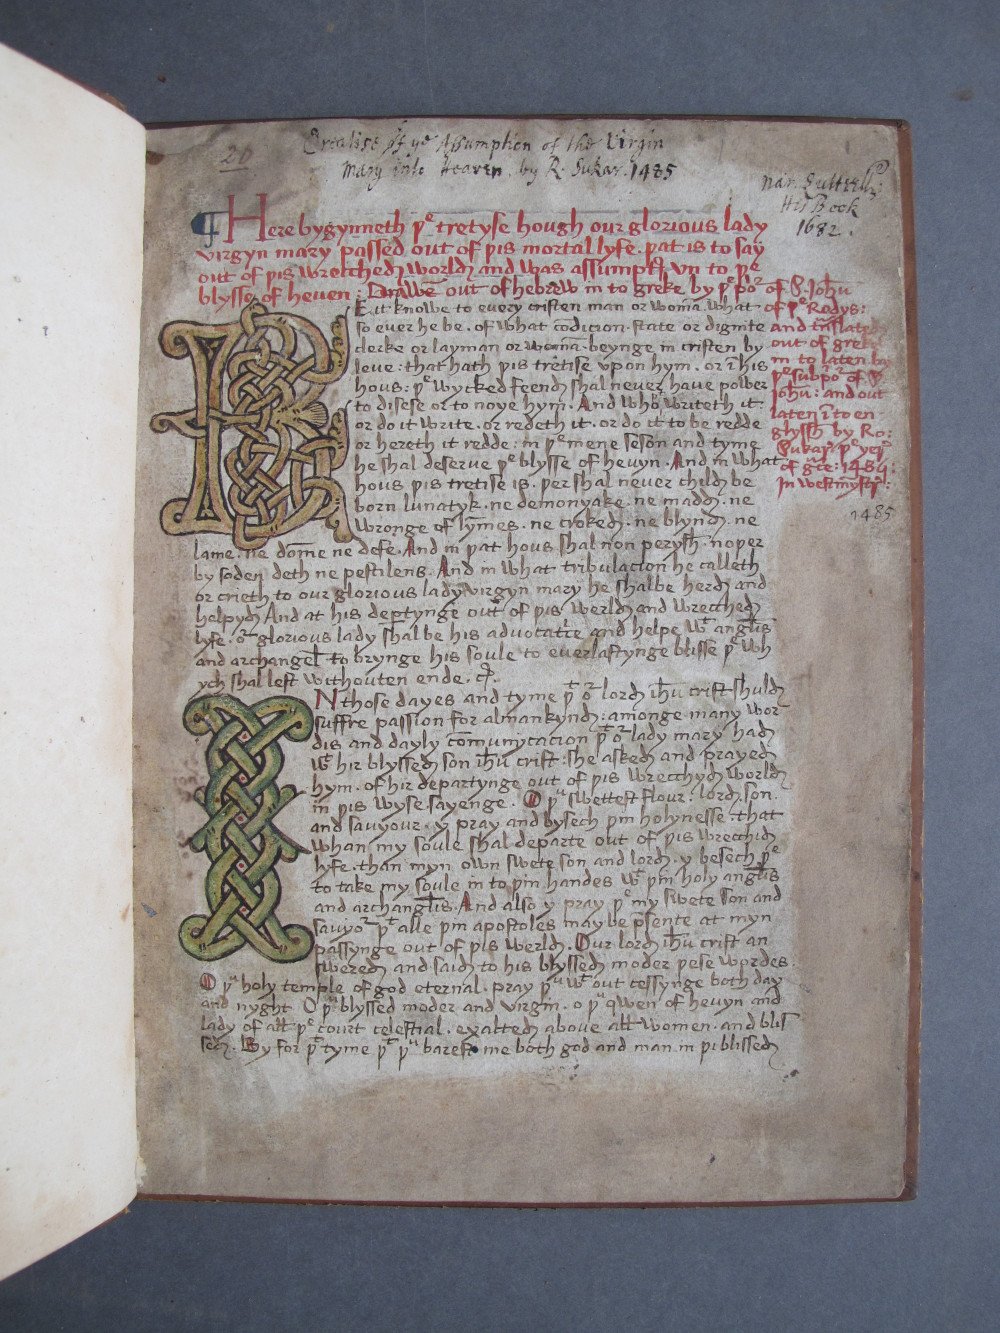 20
Treatise of yᵉ Assumption of the Virgin
Mary into Heaven. by R. Sukar. 1485
Nar. Luttrell:
His Book
1682.
¶ Here bygynneth þᵉ tretyse hough our glorious lady
virgyn mary passed out of þis mortal lyfe. þat is to say
out of þis wrecched world and was assumpte vn to þᵉ
blysse of heven : Drawen̄ out of hebrew in to greke by þᵉ poᵖ of S. Joħn
of þᵉ Rodys:
and trāslated
out of greke
in to laten by
þᵉ subpoʳ of S
Joħn: and out
laten ī to en
glyssh by Ro:
Sukar þᵉ yeʳ
of gce: 1484:
In westmystʳ:
1485
BE it knowe to every cristen man or womā. what
so ever he be. of what cōdicion. state or dignite
clerke or layman or womā. beynge in cristen by
love: that hath þis tretise vpon hym. or ī his
hous: þᵉ wycked feend shal never have power
to disese or to noye hym. And who writeth it
or do it write. or redeth it. or do it to be redde
or hereth it redde: in þᵉ mene seson and tyme
he shal deserve þᵉ blysse of hevyn. And in what
hous þis tretise is. þer shal never child be
born lunatyk. ne demonyake. ne madd. ne
wronge of lymes. ne croked. ne blynd. ne
lame. ne dome ne defe. And in þat hous shal non perysh. noþer
by soden deth ne pestilens. And in what tribulacion he calleth
or crieth to our glorious lady virgyn mary he shalbe herd and
helpyd And at his deptynge out of þis werld and wrecched
lyfe. oʳ glorious lady shalbe his advocatce and helpe wᵗ angl̄is
and archangel to brynge his soule to everlastynge blisse þᵉ wh
ych shal lest withouten ende.
IN those dayes and tyme þᵗ oʳ lord iħu crist shuld
suffre passion for almankynd: amonge many wor
dis and dayly cōmunycacion þᵗ oʳ lady mary had
wᵗ hir blyssed son iħu crist: she asked and prayed
hym. of hir departynge out of þis wrecchyd world
in þis wyse sayenge. O þᵘ swettest flour: lord. son.
and savyour. y pray and bysech þin holynesse. that
whan my soule shal departe out of þis wrecchid
lyfe. than myn own swete son and lord. y besech þᵉ
to take my soule in to þin handes wᵗ þin holy angl̄is
and archangl̄is. And also y pray þᵉ my swete son and
savyoʳ þᵗ alle þin apostoles may be psente at myn
passynge out of þis werld. Our lord iħu crist an
swered and said to his blyssed moder þese wordes.
O þᵘ holy temple of god eternal. pray þᵘ wᵗ out cessynge both day
and nyght O þᵘ blyssed moder and virgin. o þᵘ qwen of hevyn and
lady of all þᵉ court celestial. exalted above all women. and blis
sed. By for þᵗ tyme þᵗ þᵘ barest me both god and man in þi blissed